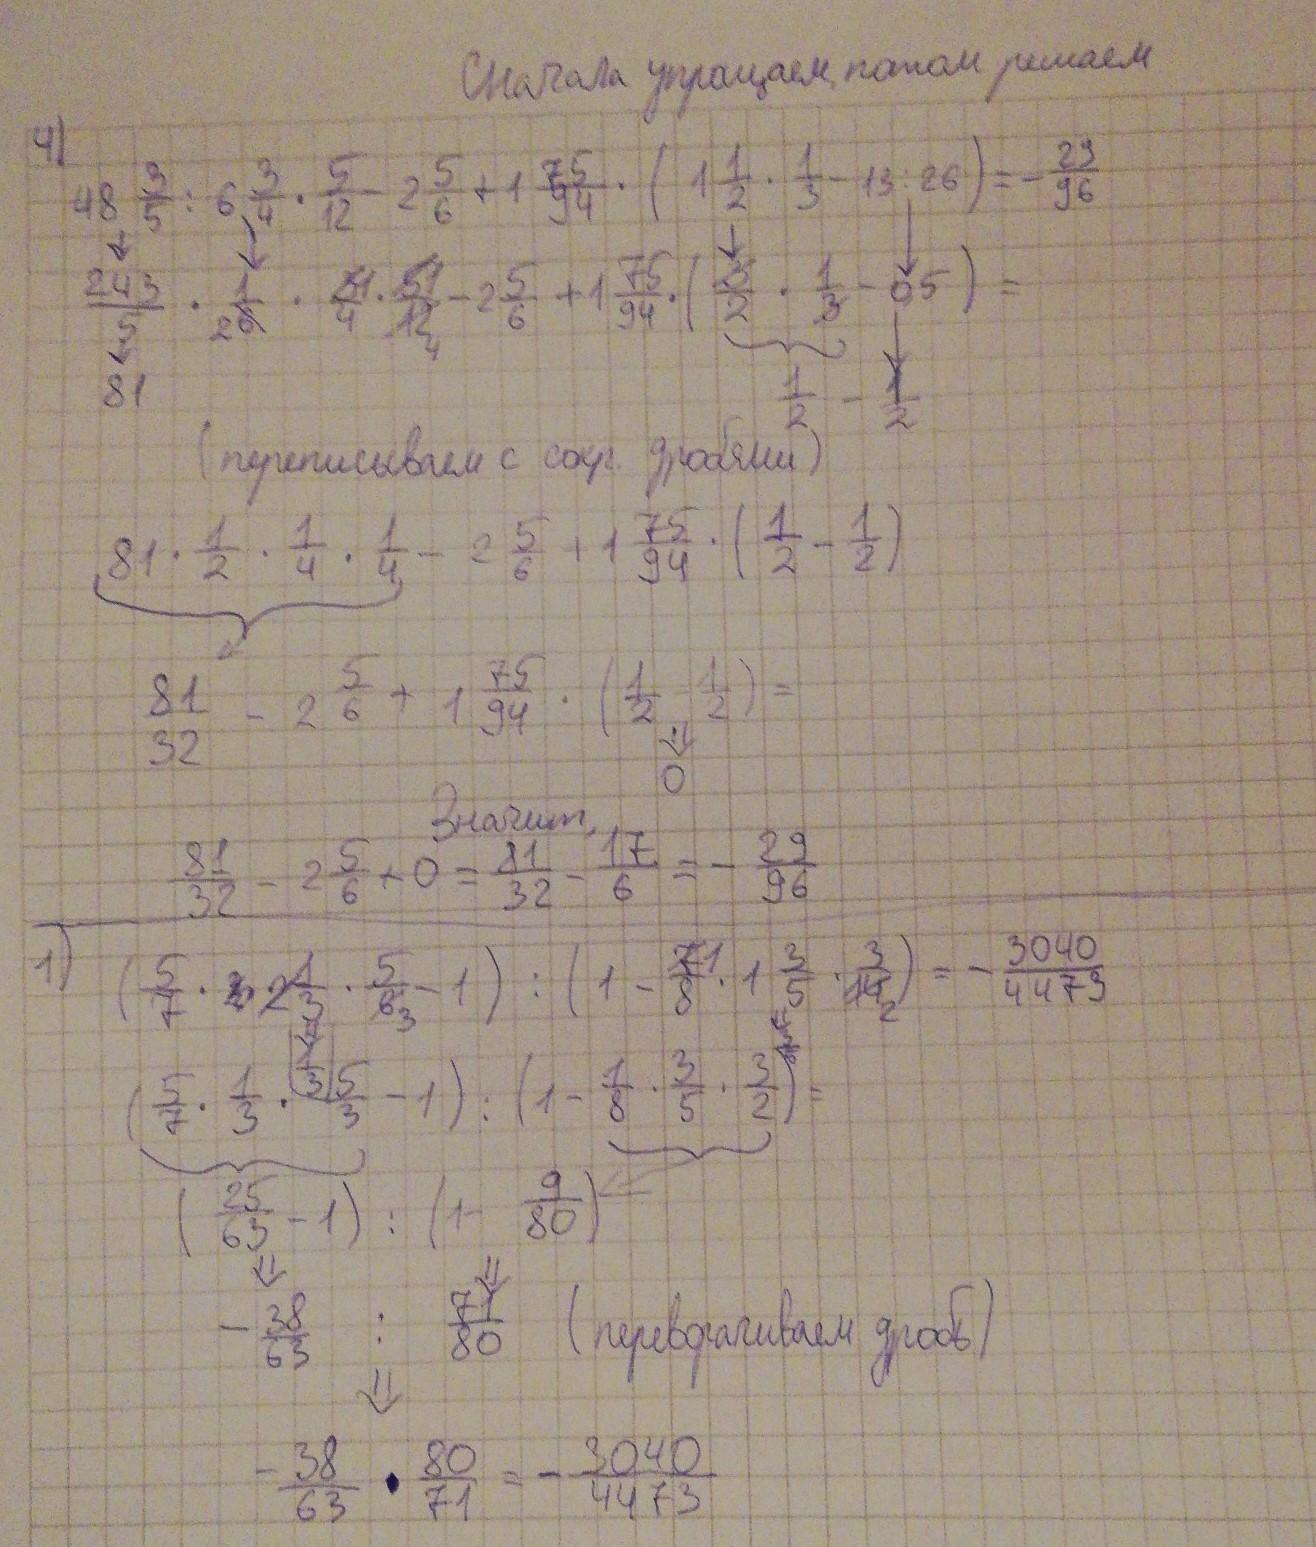 Сначала упрощаем, потом решаем
4)
48 3/5 : 6 3/4 · 5/12 - 2 5/6 + 1 75/94 · (1 1/2 · 1/3 - 13 : 26) = - 29/96
243/5 · 1/26 · 21/4 · 51/12 4 - 2 5/6 + 1 75/94 · (3/2 · 1/3 - 05) =
81
1/2 - 1/2
(переписываем с сокр. дробями)
81 · 1/2 · 1/4 · 1/4 - 2 5/6 + 1 75/94 · (1/2 - 1/2)
81/32 - 2 5/6 + 1 75/94 · (1/2 - 1/2) =
0
Значит,
81/32 - 2 5/6 + 0 = 81/32 - 17/6 = - 29/96
1)
(5/7 · 2 1/3 · 5/6 3 - 1) : (1 - 71/8 · 1 3/5 · 3/14 2) = - 3040/4473
(5/7 · 1/3 · 5/3 - 1) : (1 - 1/8 · 3/5 · 3/2) =
(25/63 - 1) : (1 - 9/80)
- 38/63 : 71/80 (переворачиваем дробь)
- 38/63 · 80/71 = - 3040/4473